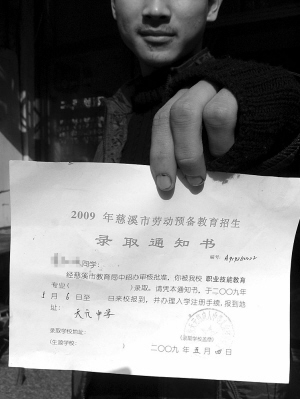 2009 年慈溪市劳动预备教育招生
录取通知书
编号:
同学:
经慈溪市教育局中招办审核批准,你被我校 职业技能教育
专业( )录取。请凭本通知书,于二〇〇九年
5月6日至 日来校报到,并办理入学注册手续,报到地
址:
录取学校地址: (录取学校盖章)
(生源学校) 二〇〇九年 五月 四日